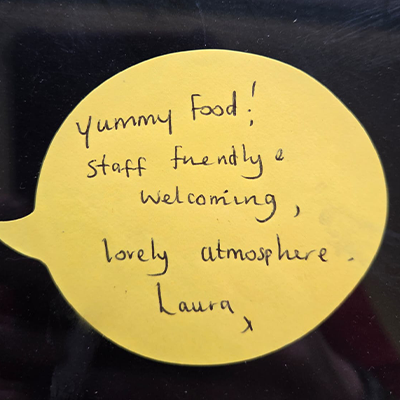 Yummy Food!
Staff friendly &
welcoming,
lovely atmosphere.
Laura
x